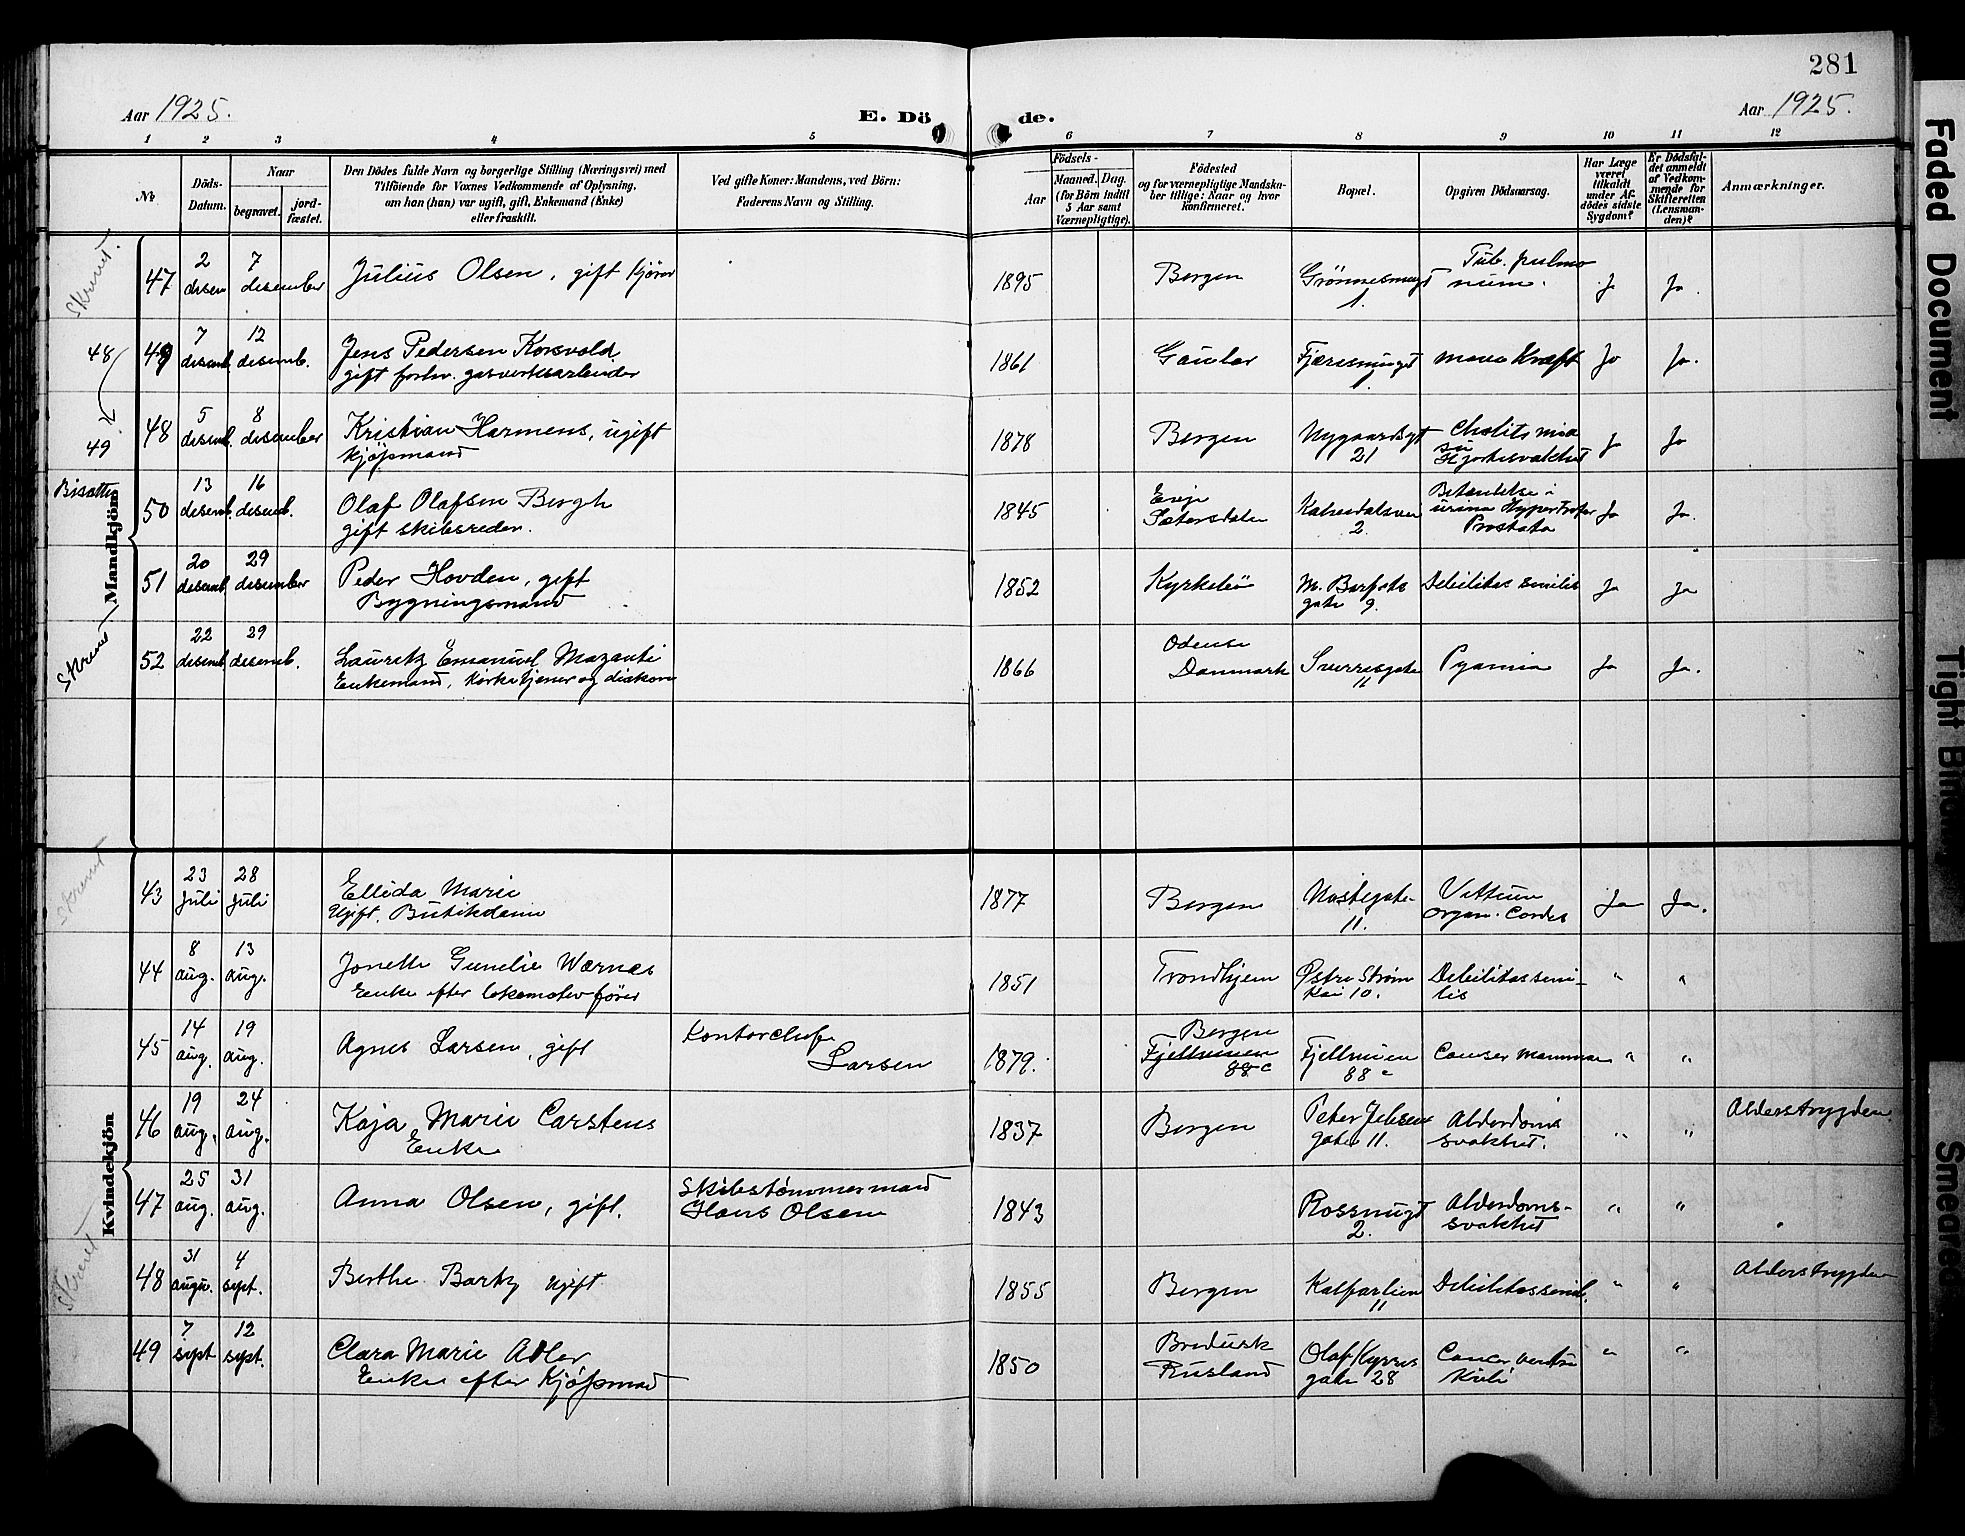 281
Aar 1925.
E. Döde.
Aar 1925.
1 2 3 4 5 6 7 8 9 10 11 12
No.
Döds-Datum.
Naar
begravet.
jord-fæstet.
Den Dödes fulde Navn og borgerlige Stilling (Næringsvei) med
Tilföiende for Voxnes Vedkommende af Oplysning,
om han (hun) var ugift, gift, Enkemand (Enke)
eller fraskilt.
Ved gifte Koner: Mandens, ved Börn:
Faderens Navn og Stilling.
Födsels-
Aar
Maaned. Dag.
(for Börn indtil
5 Aar samt
Værnepligtige).
Födested
og for værnepligtige Mandska-
ber tillige: Naar og hvor
konfirmeret.
Bopæl.
Opgiven Dödsaarsag.
Har Læge
været
tilkaldt
under Af-
dödes sidste
Sygdom?
Er Dödsfal-
det anmeldt
af Vedkom-
mende for
Skifteretten
(Lensman-
den)?
Anmærkninger.
Mandkjön
Skrevet.
47 2 desem 7 desember Julius Olsen, gift kjører 1895 Bergen Grønnesmugt 1. Tub. pulmonum. J Ja.
48
49 7 desemb. 12 desemb. Jens Pedersen Korsvold gift forhv. gasverksarbeider 1861 Gaular Fjæresmuget 1 mave Kræft Ja Ja.
49
48 5 desemb. 8 desember Kristian Harmens, ugift kjøpmand 1878 Bergen Nygaardsgt 21 Hjertesvakhet Ja Ja
Bisættes
50 13 desemb. 16 desemb. Olaf Olafsen Bergh gift skibsreder. 1845 Sætersdalen Kalvedalsvei 2. Betændelse i urina Hypertrofor Prostata Ja Ja.
51 20 desemb 29 desember Peder Hovden, gift Bygningsmand 1852 Kyrkebø gate 9. Debilitas senilis Ja Ja
Skrevet
52 22 desemb 29 desemb. Lauretz Emanuel Mazanti Enkemand, kirketjener og diakon 1866 Odense Danmark Sverresgate 11 Pyæmia Ja Ja.
Kvindekjön
Skrevet
43 23 Juli 28 Juli Ellida Marie Ugift. Butikdame 1877 Bergen Nøstegaten 11. Vittium organ. Cordis Ja Ja.
44 8 aug. 13 aug. Jonette Gunelie Wærnes Enke efter lokomotivfører 1851 Trondhjem Østre Strømkai 10. Debilitas senilis " "
45 14 aug. 19 aug. Agnes Larsen, gift Kontorchef Larsen 1879. Bergen Fjellveien 88 c Fjellveien 88 c Canser mammae " "
46 19 aug. 24 aug. Kaja Marie Carstens Enke 1837 Bergen Peter Jebsens gate 11. Alderdomssvakhet. " " Alderstrygden
47 25 aug. 31 aug. Anna Olsen, gift. Skibstømmermand Hans Olsen 1843 Rossmugt 2. Alderdoms-svakhet " "
Skrevet
48 31 augu. 4 sept. Berthe Bartz ugift 1855 Bergen Kalfarlien 11 Debilitas senil. " " Alderstrygden
49 7 sept 12 sept. Clara Marie Adler Enke efter Kjøpmad 1850 Rusland Olaf Kyrres gate 28 Cancer ventriculi " "
Faded Document
Tight Binding
Smeared